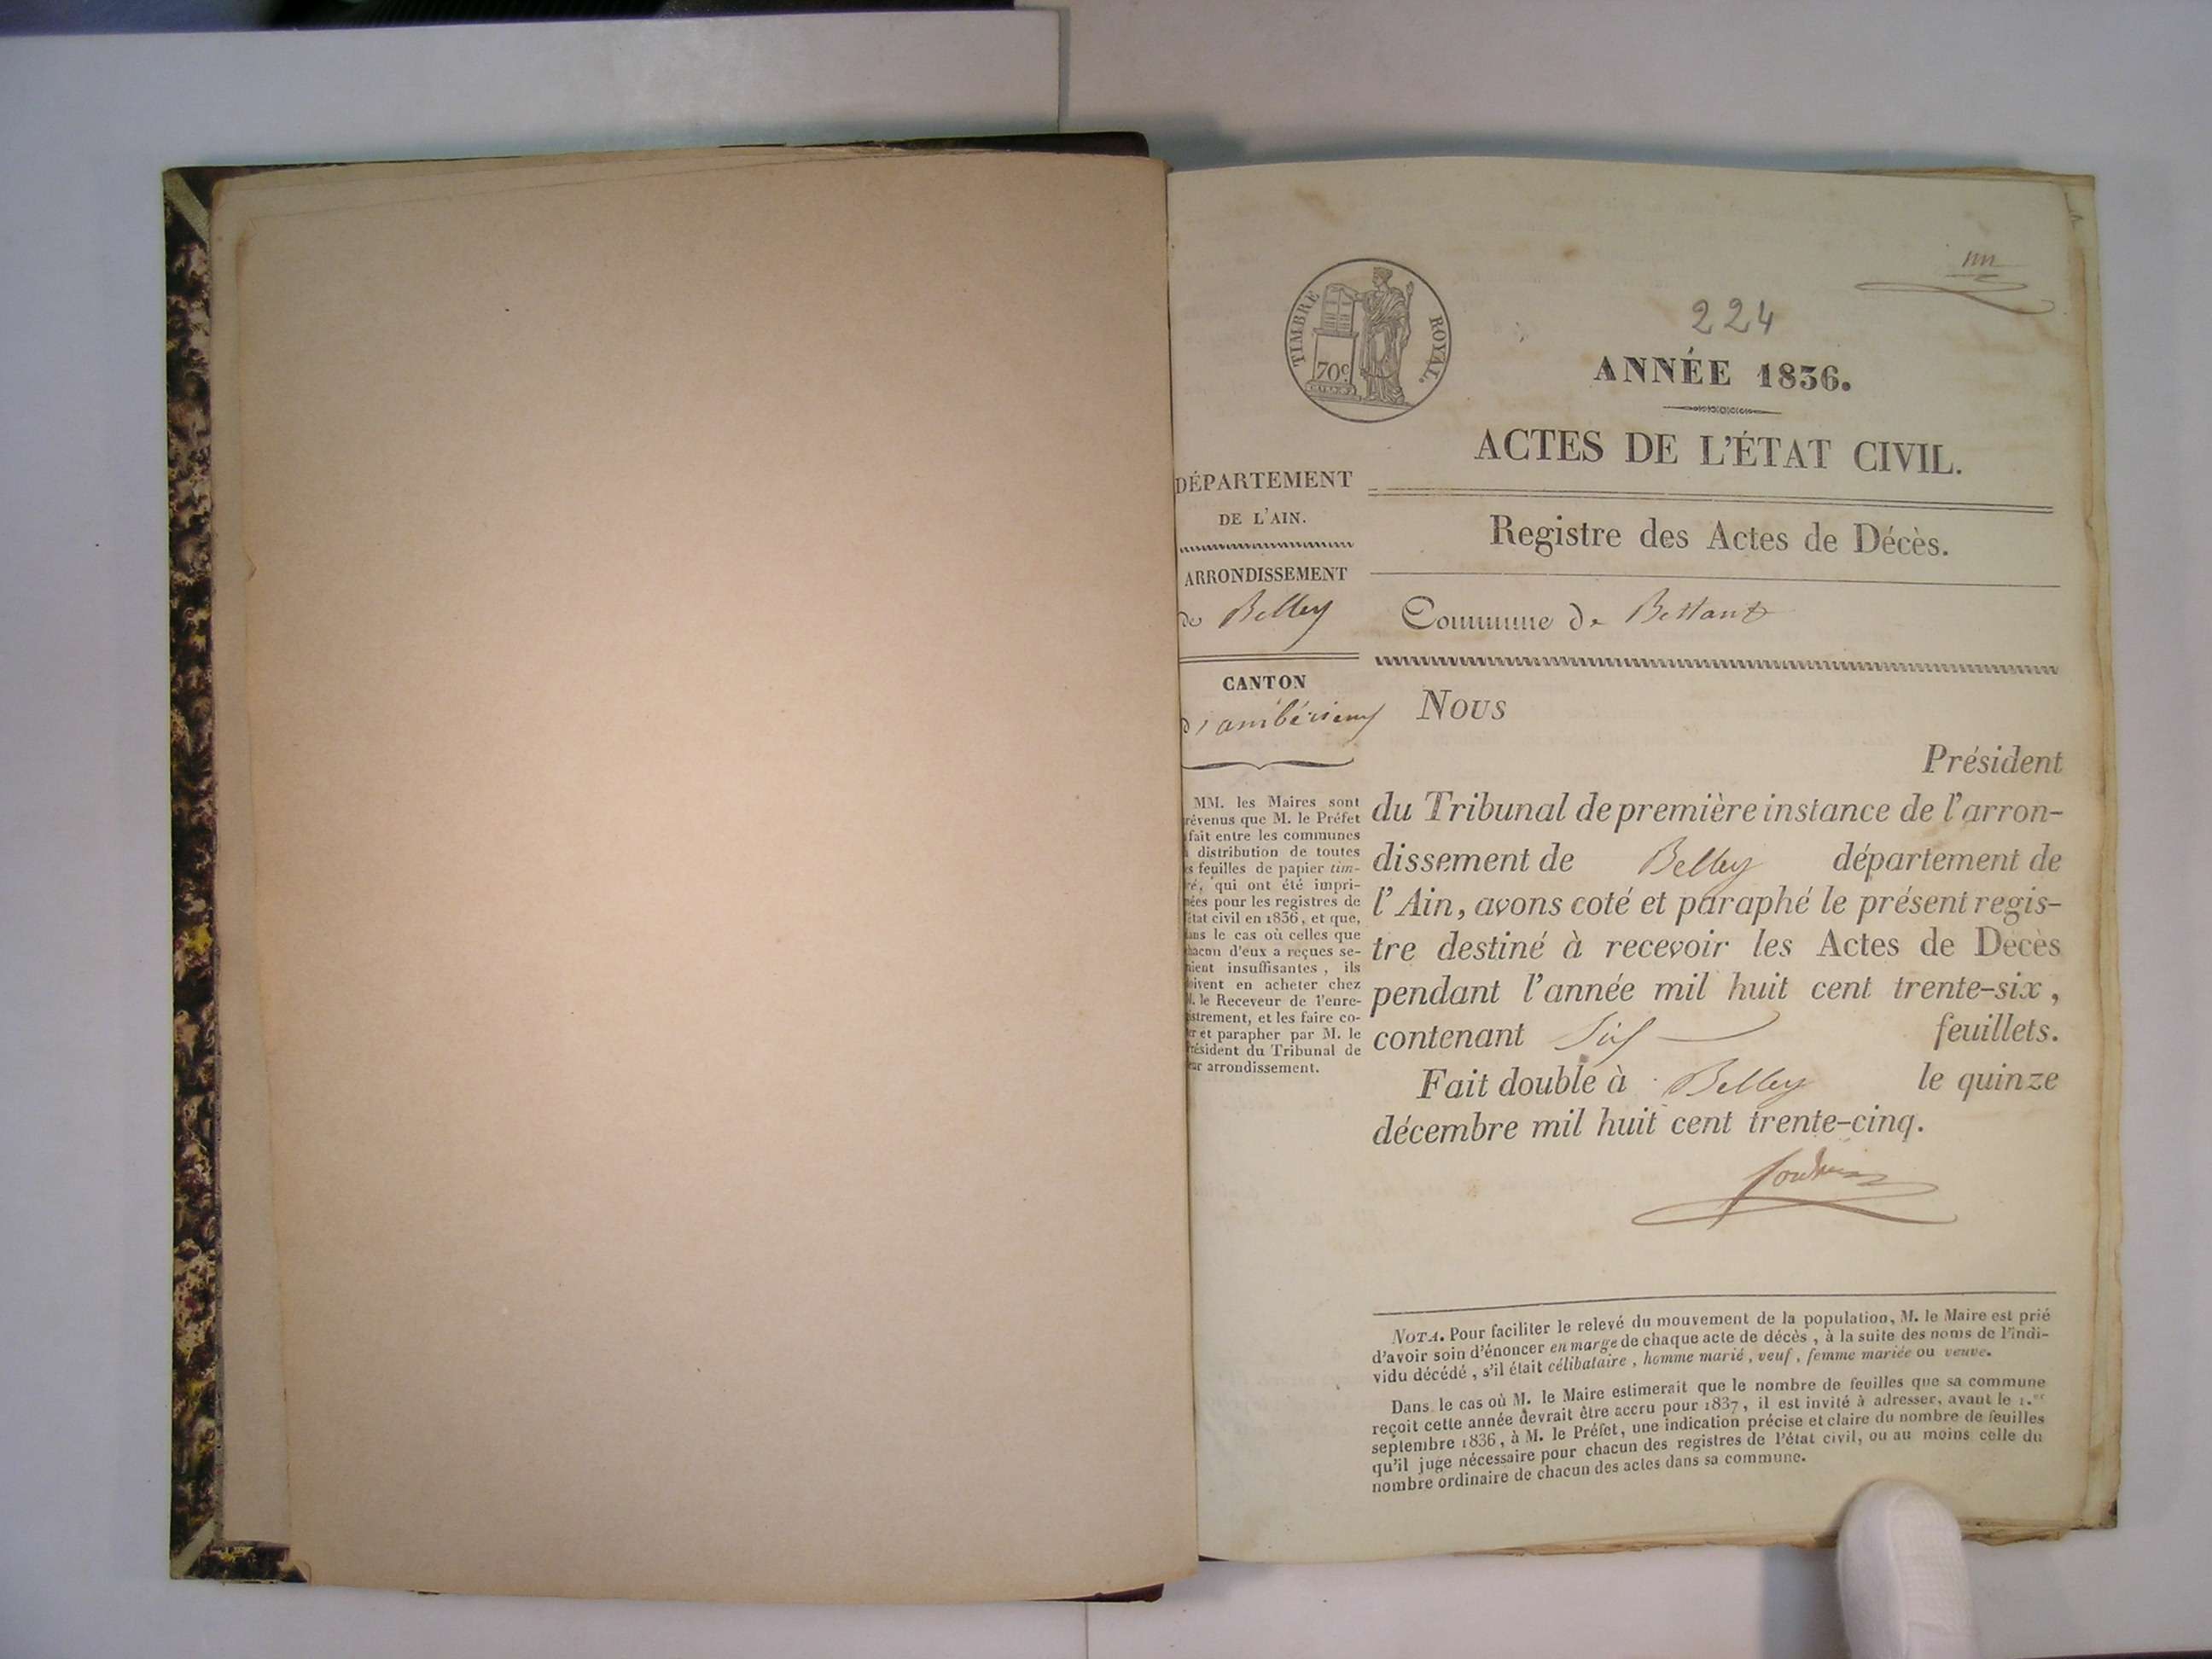 un
224
TIMBRE ROYAL.
70c
ANNÉE 1836.
ACTES DE L'ÉTAT CIVIL.
Registre des Actes de Décès.
Commune de Bettant
DÉPARTEMENT
DE L'AIN.
ARRONDISSEMENT
de Belley
CANTON
d'ambérieux
MM. les Maires sont
révenus que M. le Préfet
fait entre les communes
distribution de toutes
s feuilles de papier tim-
ré, qui ont été impri-
ées pour les registres de
état civil en 1836, et que,
ans le cas où celles que
hacun d'eux a reçues se-
aient insuffisantes, ils
oivent en acheter chez
M. le Receveur de l'enre-
istrement, et les faire co-
er et parapher par M. le
Président du Tribunal de
ur arrondissement.
Nous
Président
du Tribunal de première instance de l'arron-
dissement de Belley département de
l'Ain, avons coté et paraphé le présent regis-
tre destiné à recevoir les Actes de Décès
pendant l'année mil huit cent trente-six,
contenant Six feuillets.
Fait double à Belley le quinze
décembre mil huit cent trente-cinq.
NOTA. Pour faciliter le relevé du mouvement de la population, M. le Maire est prié
d'avoir soin d'énoncer en marge de chaque acte de décès, à la suite des noms de l'indi-
vidu décédé, s'il était célibataire, homme marié, veuf, femme mariée ou veuve.
Dans le cas où M. le Maire estimerait que le nombre de feuilles que sa commune
reçoit cette année devrait être accru pour 1837, il est invité à adresser, avant le 1.er
septembre 1836, à M. le Préfet, une indication précise et claire du nombre de feuilles
qu'il juge nécessaire pour chacun des registres de l'état civil, ou au moins celle du
nombre ordinaire de chacun des actes dans sa commune.